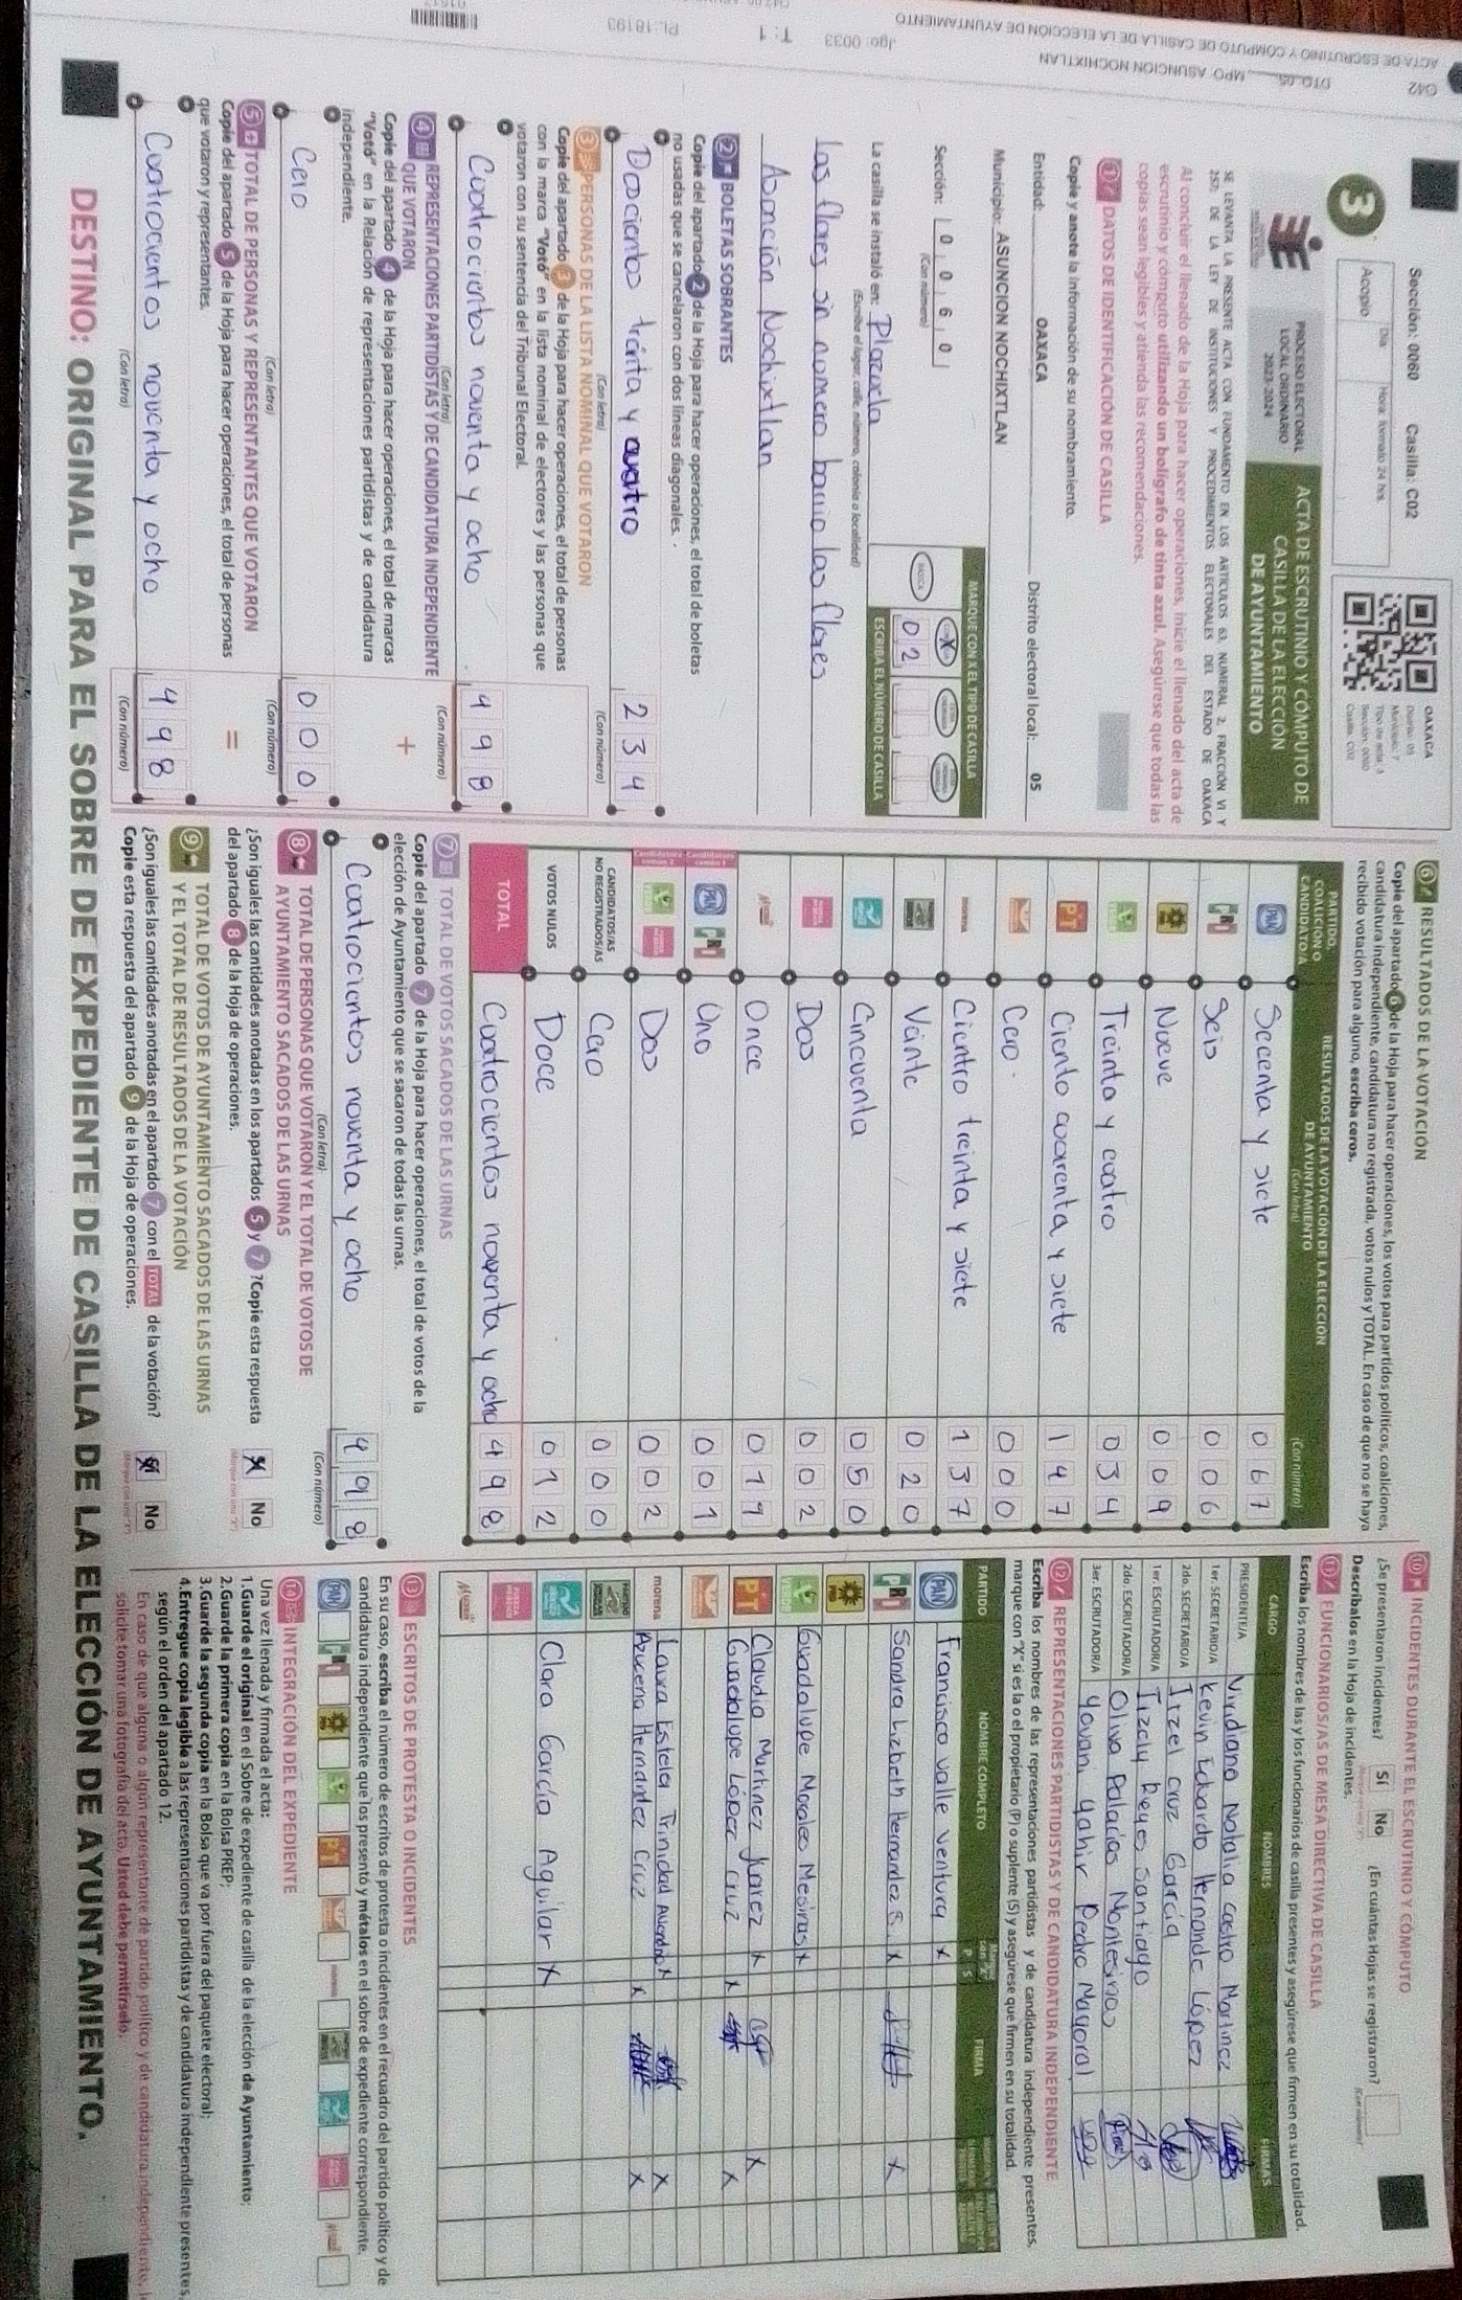 Sección: 0060 Casilla: C02
OAXACA
Distrito: 05
Tipo de acta: 3
Sección: 0060
Casilla: C02
3
Acopio
Día
Hora: formato 24 hrs.
PROCESO ELECTORAL
LOCAL ORDINARIO
2023-2024
ACTA DE ESCRUTINIO Y CÓMPUTO DE
CASILLA DE LA ELECCIÓN
DE AYUNTAMIENTO
SE LEVANTA LA PRESENTE ACTA CON FUNDAMENTO EN LOS ARTÍCULOS 63, NUMERAL 2, FRACCIÓN VI Y
257, DE LA LEY DE INSTITUCIONES Y PROCEDIMIENTOS ELECTORALES DEL ESTADO DE OAXACA
Al concluir el llenado de la Hoja para hacer operaciones, inicie el llenado del acta de
escrutinio y cómputo utilizando un bolígrafo de tinta azul. Asegúrese que todas las
copias sean legibles y atienda las recomendaciones.
1 DATOS DE IDENTIFICACIÓN DE CASILLA
Copie y anote la información de su nombramiento.
Entidad: OAXACA Distrito electoral local: 05
Municipio: ASUNCION NOCHIXTLAN
Sección: 0 0 6 0
(Con número)
MARQUE CON X EL TIPO DE CASILLA
BÁSICA
X
0 2
ESCRIBA EL NÚMERO DE CASILLA
La casilla se instaló en: Plazuela
(Escriba el lugar, calle, número, colonia o localidad)
las flores sin numero barrio las flores
Asunción Nochixtlan
2 BOLETAS SOBRANTES
Copie del apartado 2 de la Hoja para hacer operaciones, el total de boletas
no usadas que se cancelaron con dos líneas diagonales.
Doscientos tránta y cuatro 2 3 4
(Con letra) (Con número)
3 PERSONAS DE LA LISTA NOMINAL QUE VOTARON
Copie del apartado 3 de la Hoja para hacer operaciones, el total de personas
con la marca "Votó" en la lista nominal de electores y las personas que
votaron con su sentencia del Tribunal Electoral.
Cuatrocientos noventa y ocho 4 9 8
(Con letra) (Con número)
4 REPRESENTACIONES PARTIDISTAS Y DE CANDIDATURA INDEPENDIENTE
QUE VOTARON
+
Copie del apartado 4 de la Hoja para hacer operaciones, el total de marcas
"Votó" en la Relación de representaciones partidistas y de candidatura
independiente.
Cero 0 0 0
(Con letra) (Con número)
5 TOTAL DE PERSONAS Y REPRESENTANTES QUE VOTARON
=
Copie del apartado 5 de la Hoja para hacer operaciones, el total de personas
que votaron y representantes.
Cuatrocientos noventa y ocho 4 9 8
(Con letra) (Con número)
6 RESULTADOS DE LA VOTACIÓN
Copie del apartado 6 de la Hoja para hacer operaciones, los votos para partidos políticos, coaliciones,
candidatura independiente, candidatura no registrada, votos nulos y TOTAL. En caso de que no se haya
recibido votación para alguno, escriba ceros.
PARTIDO,
COALICIÓN O
CANDIDATO/A
RESULTADOS DE LA VOTACIÓN DE LA ELECCIÓN
DE AYUNTAMIENTO
(Con letra)
(Con número)
PAN Secenta y siete 0 6 7
PRI Seis 0 0 6
PRD Nueve 0 0 9
Treinta y cuatro 0 3 4
PT Ciento cuarenta y siete 1 4 7
Cero 0 0 0
morena Cientro treinta y siete 1 3 7
Veinte 0 2 0
Cincuenta 0 5 0
Dos 0 0 2
Once 0 1 1
PAN PRI Uno 0 0 1
Dos 0 0 2
CANDIDATOS/AS
NO REGISTRADOS/AS Cero 0 0 0
VOTOS NULOS Doce 0 1 2
TOTAL Cuatrocientos noventa y ocho 4 9 8
7 TOTAL DE VOTOS SACADOS DE LAS URNAS
Copie del apartado 7 de la Hoja para hacer operaciones, el total de votos de la
elección de Ayuntamiento que se sacaron de todas las urnas.
Cuatrocientos noventa y ocho 4 9 8
(Con letra) (Con número)
8 TOTAL DE PERSONAS QUE VOTARON Y EL TOTAL DE VOTOS DE
AYUNTAMIENTO SACADOS DE LAS URNAS
¿Son iguales las cantidades anotadas en los apartados 5 y 7 ?Copie esta respuesta
del apartado 8 de la Hoja de operaciones.
X No
9 TOTAL DE VOTOS DE AYUNTAMIENTO SACADOS DE LAS URNAS
Y EL TOTAL DE RESULTADOS DE LA VOTACIÓN
¿Son iguales las cantidades anotadas en el apartado 7 con el TOTAL de la votación?
Copie esta respuesta del apartado 9 de la Hoja de operaciones.
Sí No
10 INCIDENTES DURANTE EL ESCRUTINIO Y CÓMPUTO
¿Se presentaron incidentes? Sí No ¿En cuántas Hojas se registraron?
Descríbalos en la Hoja de incidentes.
(Con número)
11 FUNCIONARIOS/AS DE MESA DIRECTIVA DE CASILLA
Escriba los nombres de las y los funcionarios de casilla presentes y asegúrese que firmen en su totalidad.
CARGO NOMBRES FIRMAS
PRESIDENTE/A Viridiana Natalia Castro Martinez
1er. SECRETARIO/A Kevin Eduardo Hernande López
2do. SECRETARIO/A Itzel Cruz García
1er. ESCRUTADOR/A Tizely Reyes Santiago
2do. ESCRUTADOR/A Oliva Palacios Montesinos
3er. ESCRUTADOR/A Yovani Yahir Pedro Mayoral
12 REPRESENTACIONES PARTIDISTAS Y DE CANDIDATURA INDEPENDIENTE
Escriba los nombres de las representaciones partidistas y de candidatura independiente presentes,
marque con "X" si es la o el propietario (P) o suplente (S) y asegúrese que firmen en su totalidad.
PARTIDO NOMBRE COMPLETO P S FIRMA
PAN Francisco Valle Ventura X
PRI Sandra Lizbeth Hernandez S. X X
PRD
Guadalupe Morales Mesinas X
PT Claudia Martinez Juarez X X
Guadalupe López Cruz X X
morena Laura Estela Trinidad X X
Azucena Hernandez Cruz X X
Clara García Aguilar X
13 ESCRITOS DE PROTESTA O INCIDENTES
En su caso, escriba el número de escritos de protesta o incidentes en el recuadro del partido político y de
candidatura independiente que los presentó y métalos en el sobre de expediente correspondiente.
14 INTEGRACIÓN DEL EXPEDIENTE
Una vez llenada y firmada el acta:
1.Guarde el original en el Sobre de expediente de casilla de la elección de Ayuntamiento;
2.Guarde la primera copia en la Bolsa PREP;
3.Guarde la segunda copia en la Bolsa que va por fuera del paquete electoral;
4.Entregue copia legible a las representaciones partidistas y de candidatura independiente presentes,
según el orden del apartado 12.
En caso de que alguna o algún representante de partido político y de candidatura independiente,
solicite tomar una fotografía del acta. Usted debe permitírselo.
DESTINO: ORIGINAL PARA EL SOBRE DE EXPEDIENTE DE CASILLA DE LA ELECCIÓN DE AYUNTAMIENTO.
ACTA DE ESCRUTINIO Y CÓMPUTO DE CASILLA DE LA ELECCION DE AYUNTAMIENTO
042 DTO. 05 MPO. ASUNCION NOCHIXTLAN
Jgo: 0033 T: 1 PL: 18193